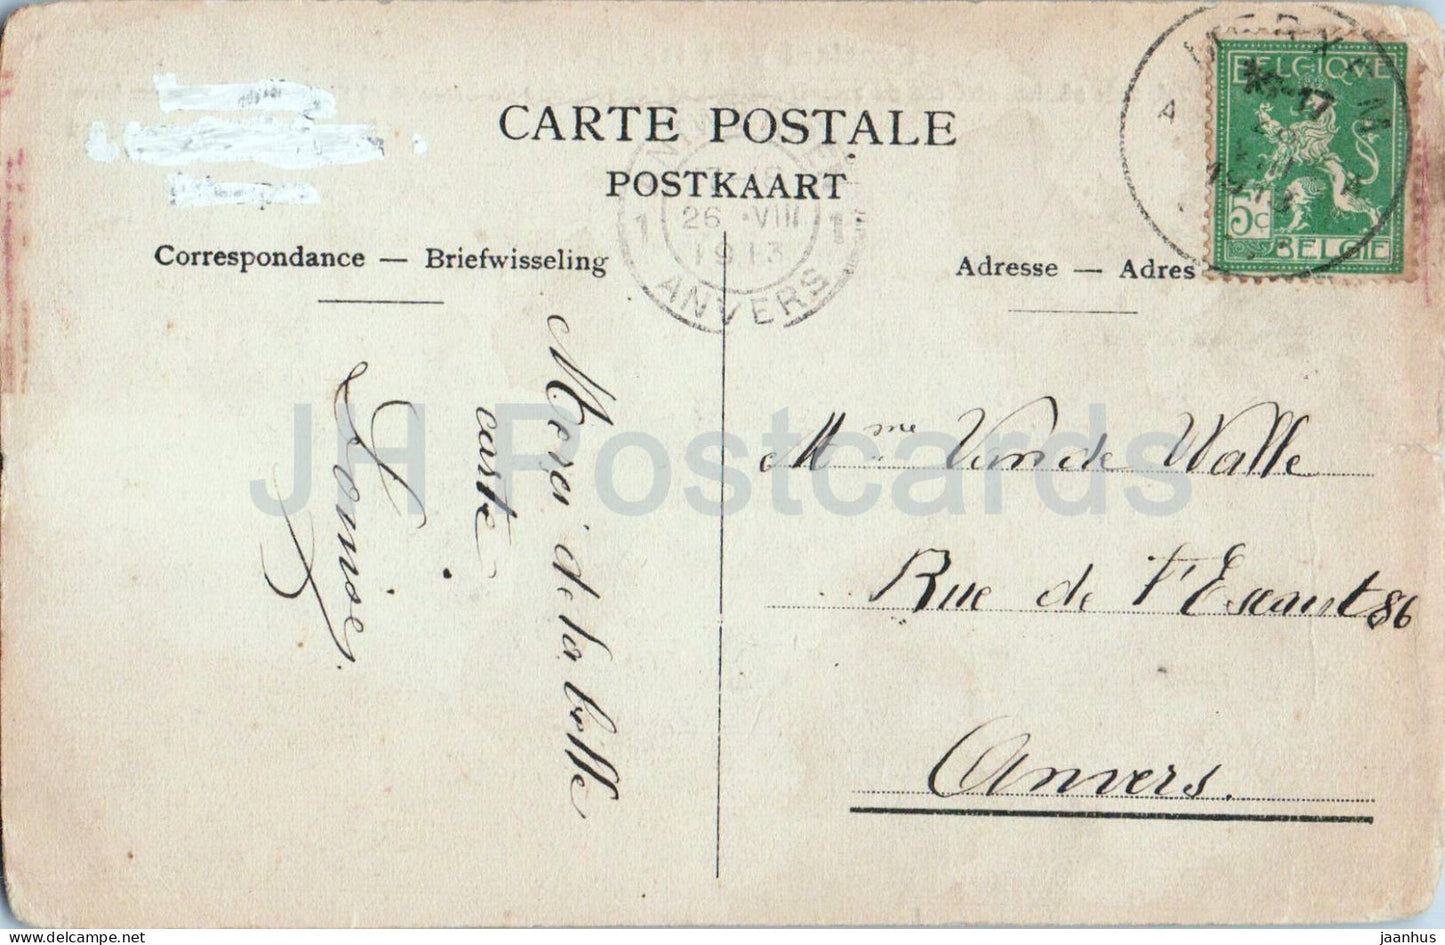 CARTE POSTALE
POSTKAART
Correspondance — Briefwisseling
Adresse — Adres
BELGIQUE
5c
BELGIË
MERXEM
A
A
16-17
1913
1
26 VIII
1
1913
ANVERS
Merci de la belle
carte.
Louise.
Mme Van de Walle
Rue de l'Escaut 86
Anvers.
JH Postcards
jaanhus
delcampe.net